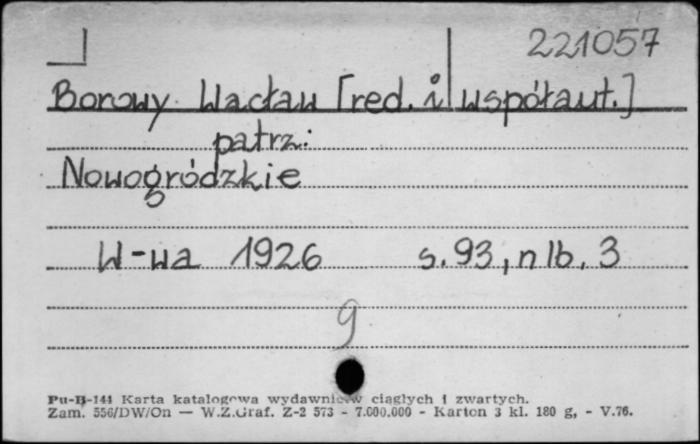 221057
Borowy Wacław [red. i współaut.]
patrz:
Nowogródzkie
W-wa 1926 s. 93, nlb. 3
g
Pu-B-144 Karta katalogowa wydawnictw ciągłych i zwartych.
Zam. 556/DW/On — W.Z.Graf. Z-2 573 - 7.000.000 - Karton 3 kl. 180 g, - V.76.